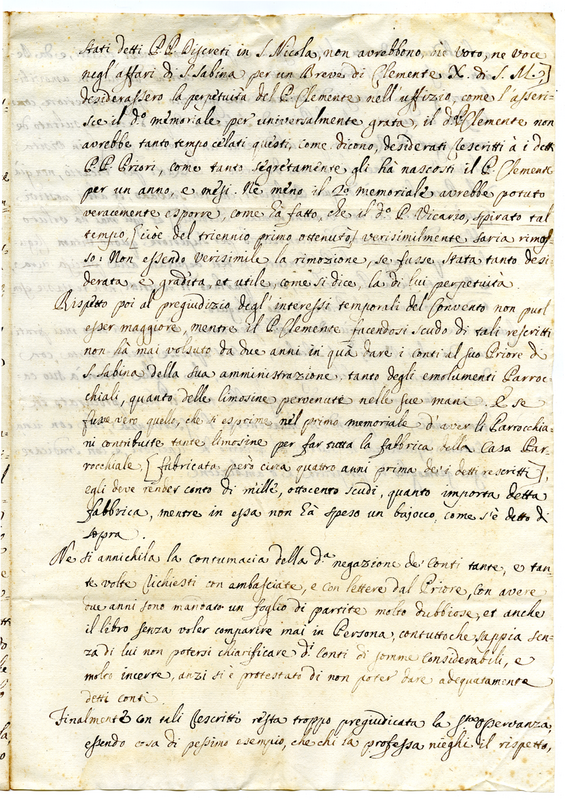 stati detti P.P. Discreti in S. Nicola, non avrebbono, nè voto, ne voce
negl'affari di S. Sabina per un Breve di Clemente X. di S. M.]
desiderassero la perpetuità del P. Clemente nell'uffizio, come l'asseri-
sce il do. memoriale per universalmente grata, il do. Clemente non
avrebbe tanto tempo celati questi, come dicono, desiderati Rescritti à i detti
P.P. Priori, come tanto segretamente gli hà nascosti il P. Clemente
per un anno, e mesi. Ne meno il 2o. memoriale avrebbe potuto
veracemente esporre, come hà fatto, che il do. P. Vicario, spirato tal
tempo, [cioè del triennio primo ottenuto] verisimilmente saria rimos-
so: Non essendo verisimile la rimozione, se fusse stata tanto desi-
derata e gradita, et utile, come si dice, la di lui perpetuità
Rispetto poi al pregiudizio degl'interessi temporali del Convento non puol
esser maggiore, mentre il P. Clemente facendosi scudo di tali rescritti
non hà mai volsuto da due anni in quà dare i conti al suo Priore di
S. Sabina della sua amministrazione, tanto degli emolumenti Parroc-
chiali, quanto delle limosine pervenute nelle sue mani. E se
fusse vero quello, che si esprime nel primo memoriale d'aver li Parrocchia-
ni contribuite tante limosine per far tutta la fabbrica della Casa Par-
rocchiale, [fabbricata però circa quattro anni prima de i detti rescritti],
egli deve render conto di mille, ottocento scudi, quanto importa detta
fabbrica, mentre in essa non hà speso un bajocco, come s'è detto di
sopra.
Ne si annichila la contumacia dalla da. negazione de' Conti tante, e tan-
te volte richiesti con ambasciate, e con lettere dal Priore, con avere
due anni sono mandato un foglio di partite molto dubbiose, et anche
il libro senza voler comparire mai in Persona, contuttoche sappia sen-
za di lui non potersi chiarificare di. Conti di somme considerabili, e
molto incerte, anzi si è protestato di non poter dare adequatamente
detti conti.
Finalmente con tali Rescritti resta troppo pregiudicata la osservanza,
essendo cosa di pessimo esempio, che chi la professa nieghi il rispetto,